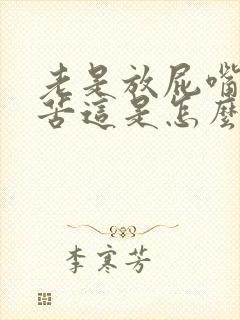 老是放屁嘴
苦這是怎麼
李寒芳